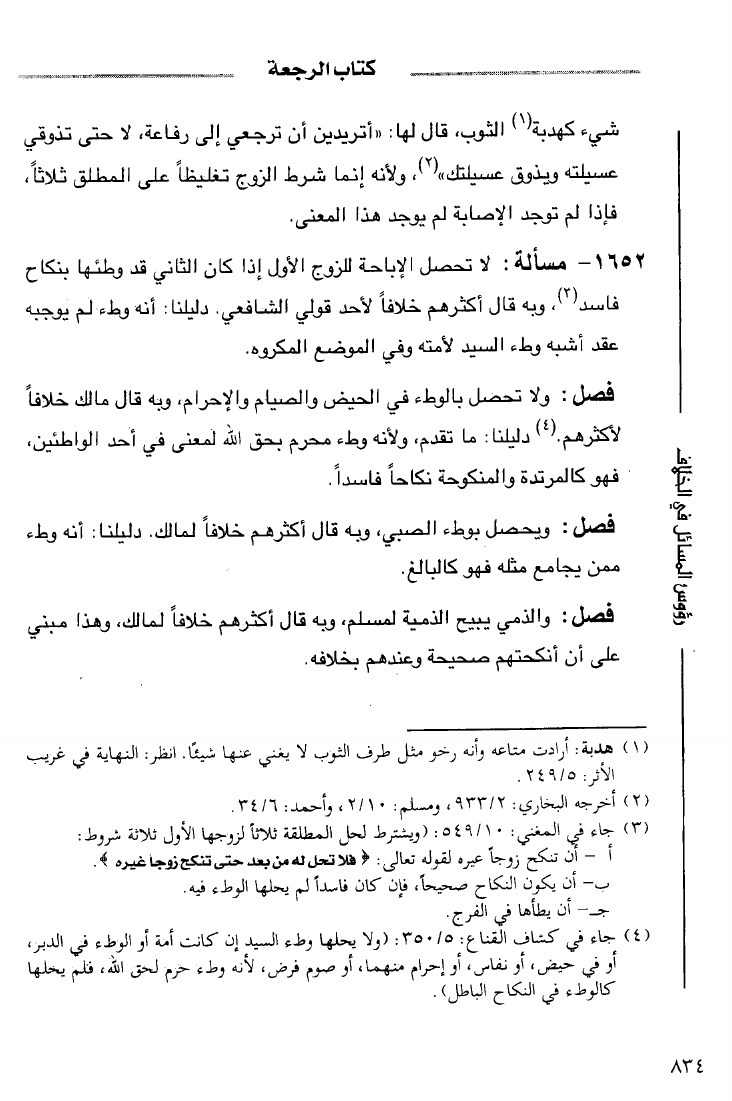 كتاب الرجعة
شيء كهدبة(١) الثوب، قال لها: «أتريدين أن ترجعي إلى رفاعة، لا حتى تذوقي
عسيلته ويذوق عسيلتك»(٢)، ولأنه إنما شرط الزوج تغليظاً على المطلق ثلاثاً،
فإذا لم توجد الإصابة لم يوجد هذا المعنى.
١٦٥٢- مسألة: لا تحصل الإباحة للزوج الأول إذا كان الثاني قد وطئها بنكاح
فاسد(٣)، وبه قال أكثرهم خلافاً لأحد قولي الشافعي. دليلنا: أنه وطء لم يوجبه
عقد أشبه وطء السيد لأمته وفي الموضع المكروه.
فصل: ولا تحصل بالوطء في الحيض والصيام والإحرام، وبه قال مالك خلافاً
لأكثرهم.(٤) دليلنا: ما تقدم، ولأنه وطء محرم بحق الله لمعنى في أحد الواطئين،
فهو كالمرتدة والمنكوحة نكاحاً فاسداً.
فصل: ويحصل بوطء الصبي، وبه قال أكثرهم خلافاً لمالك. دليلنا: أنه وطء
ممن يجامع مثله فهو كالبالغ.
فصل: والذمي يبيح الذمية لمسلم، وبه قال أكثرهم خلافاً لمالك، وهذا مبني
على أن أنكحتهم صحيحة وعندهم بخلافه.
رؤوس المسائل في الخلاف
(١) هدبة: أرادت متاعه وأنه رخو مثل طرف الثوب لا يغني عنها شيئًا. انظر: النهاية في غريب
الأثر: ٢٤٩/٥.
(٢) أخرجه البخاري: ٩٣٣/٢، ومسلم: ٢/١٠، وأحمد: ٣٤/٦.
(٣) جاء في المغني: ٥٤٩/١٠: (ويشترط لحل المطلقة ثلاثاً لزوجها الأول ثلاثة شروط:
أ - أن تنكح زوجاً غيره لقوله تعالى: ﴿فلا تحل له من بعد حتى تنكح زوجا غيره﴾.
ب- أن يكون النكاح صحيحاً، فإن كان فاسداً لم يحلها الوطء فيه.
جـ- أن يطأها في الفرج.
(٤) جاء في كشاف القناع: ٣٥٠/٥: (ولا يحلها وطء السيد إن كانت أمة أو الوطء في الدبر،
أو في حيض، أو نفاس، أو إحرام منهما، أو صوم فرض، لأنه وطء حرم لحق الله، فلم يحلها
كالوطء في النكاح الباطل).
٨٣٤